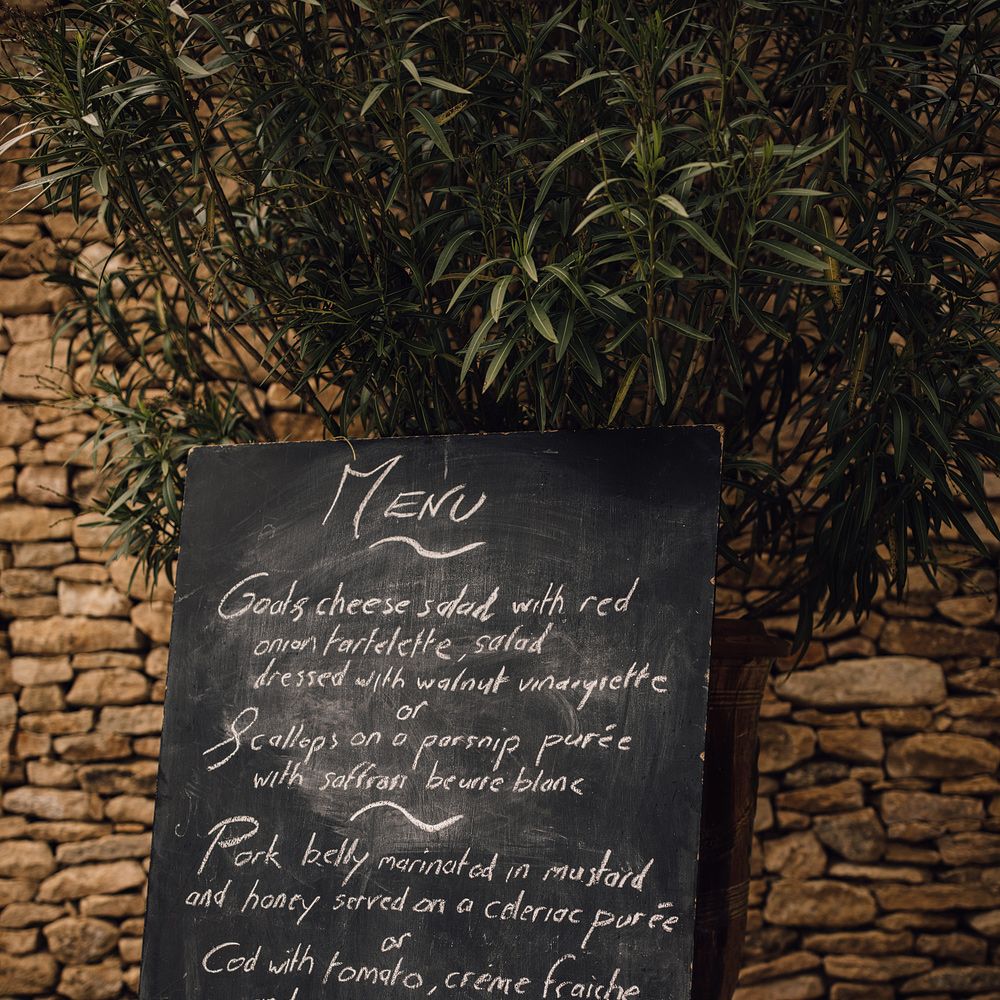 MENU
Goats cheese salad with red
onion tartelette, salad
dressed with walnut vinaigrette
or
Scallops on a parsnip purée
with saffran beurre blanc
Pork belly marinated in mustard
and honey served on a celeriac purée
or
Cod with tomato, créme fraiche